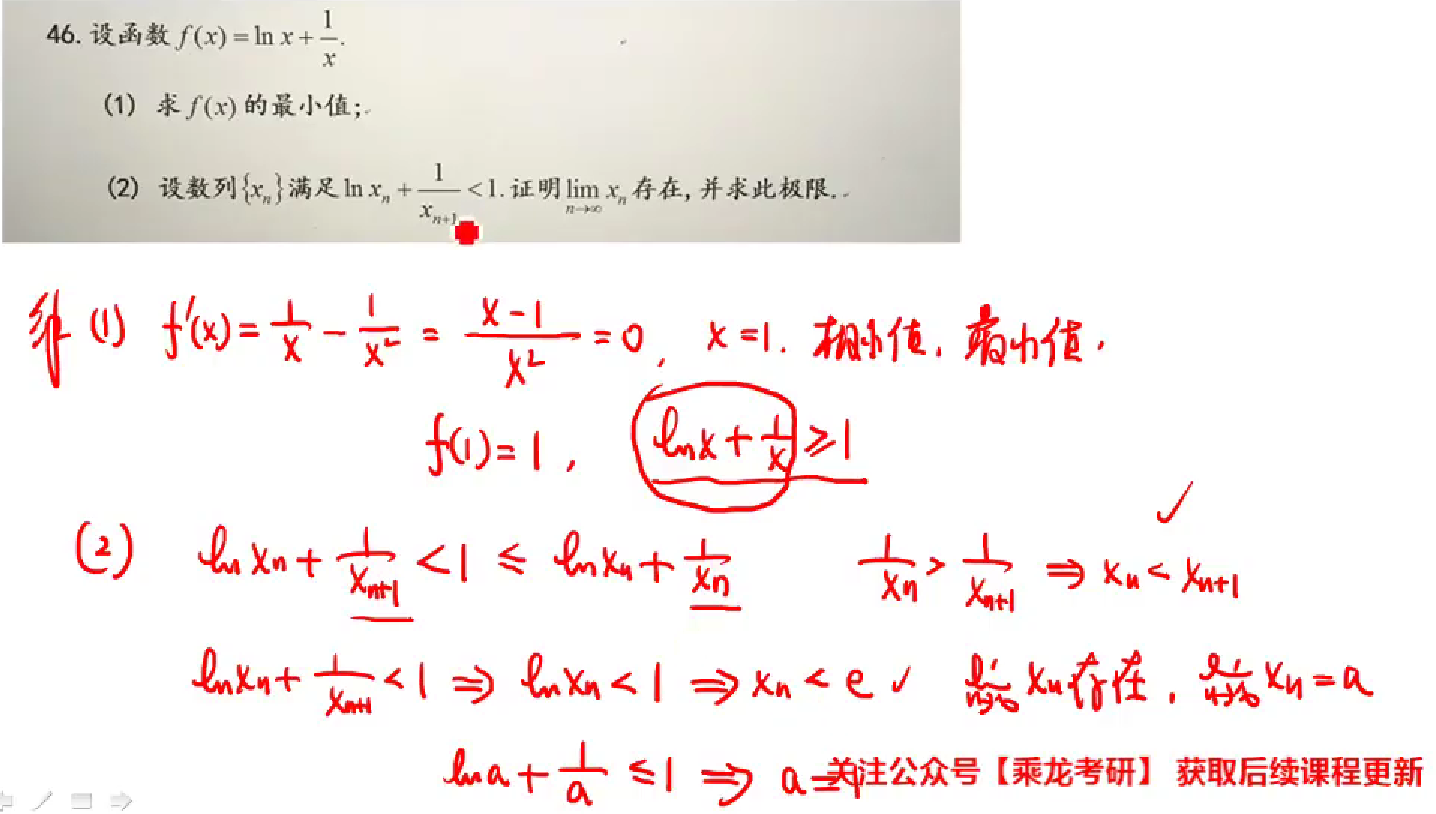 46. 设函数 f(x) = ln x + 1/x.
(1) 求 f(x) 的最小值;
(2) 设数列{x_n}满足 ln x_n + 1/x_{n+1} < 1. 证明 lim_{n→∞} x_n 存在, 并求此极限.
解 (1) f'(x) = 1/x - 1/x² = (x-1)/x² = 0, x = 1. 极小值, 最小值.
f(1) = 1, ln x + 1/x ≥ 1
✓
(2) ln x_n + 1/x_{n+1} < 1 ≤ ln x_n + 1/x_n 1/x_n > 1/x_{n+1} ⇒ x_n < x_{n+1}
ln x_n + 1/x_{n+1} < 1 ⇒ ln x_n < 1 ⇒ x_n < e ✓ lim_{n→∞} x_n 存在, lim_{n→∞} x_n = a
ln a + 1/a ≤ 1 ⇒ a = 1
关注公众号【乘龙考研】 获取后续课程更新